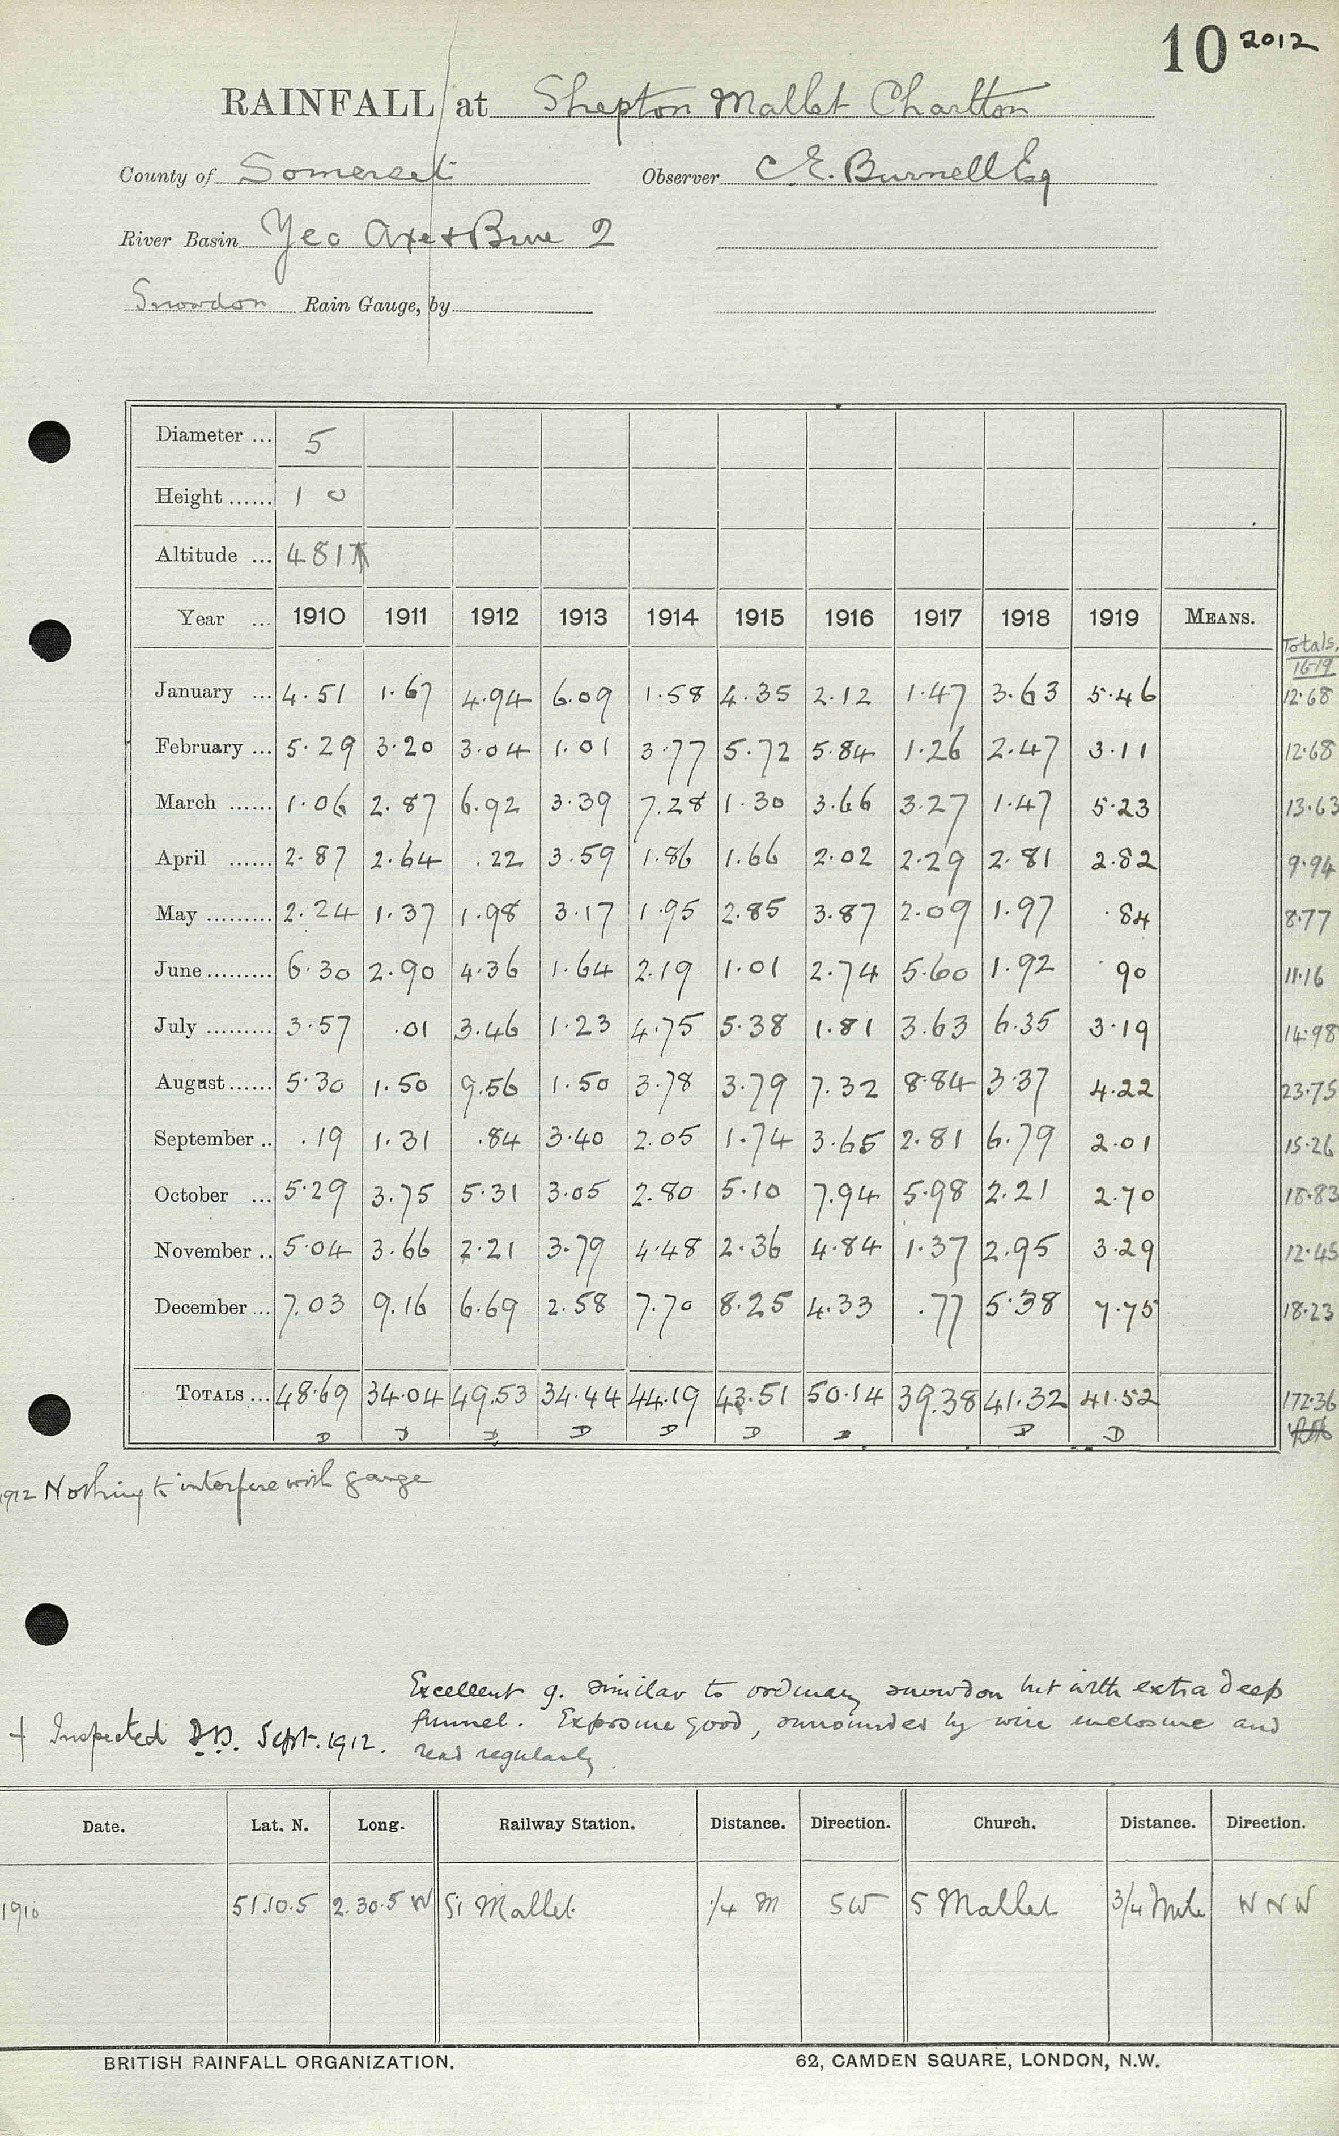 10 2012
RAINFALL at Shepton Mallet Charlton
County of Somerset Observer C. E. Burnell Esq
River Basin Yeo Axe & Brue 2
Snowdon Rain Gauge, by
Diameter ... 5
Height ...... 1 0
Altitude ... 481
Year ... 1910 1911 1912 1913 1914 1915 1916 1917 1918 1919 MEANS. Totals.
16-19
January ... 4.51 1.67 4.94 6.09 1.58 4.35 2.12 1.47 3.63 5.46 12.68
February ... 5.29 3.20 3.04 1.01 3.77 5.72 5.84 1.26 2.47 3.11 12.68
March ...... 1.06 2.87 6.92 3.39 7.28 1.30 3.66 3.27 1.47 5.23 13.63
April ...... 2.87 2.64 .22 3.59 1.86 1.66 2.02 2.29 2.81 2.82 9.94
May ......... 2.24 1.37 1.98 3.17 1.95 2.85 3.87 2.09 1.97 .84 8.77
June ......... 6.30 2.90 4.36 1.64 2.19 1.01 2.74 5.60 1.92 .90 11.16
July ......... 3.57 .01 3.46 1.23 4.75 5.38 1.81 3.63 6.35 3.19 14.98
August ...... 5.30 1.50 9.56 1.50 3.78 3.79 7.32 8.84 3.37 4.22 23.75
September .. .19 1.31 .84 3.40 2.05 1.74 3.65 2.81 6.79 2.01 15.26
October ... 5.29 3.75 5.31 3.05 2.80 5.10 7.94 5.98 2.21 2.70 18.83
November .. 5.04 3.66 2.21 3.79 4.48 2.36 4.84 1.37 2.95 3.29 12.45
December ... 7.03 9.16 6.69 2.58 7.70 8.25 4.33 .77 5.38 7.75 18.23
TOTALS ... 48.69 34.04 49.53 34.44 44.19 43.51 50.14 39.38 41.32 41.52 172.36
D D D D D D D D D
1912 Nothing to interfere with gauge
Excellent g. similar to ordinary snowdon but with extra deep
funnel. Exposure good, surrounded by wire enclosure and
read regularly
+ Inspected D.D. Sept. 1912.
Date. Lat. N. Long. Railway Station. Distance. Direction. Church. Distance. Direction.
1910 51.10.5 2.30.5 W S. Mallet 1/4 M SW S Mallet 3/4 Mile W N W
BRITISH RAINFALL ORGANIZATION. 62, CAMDEN SQUARE, LONDON, N.W.